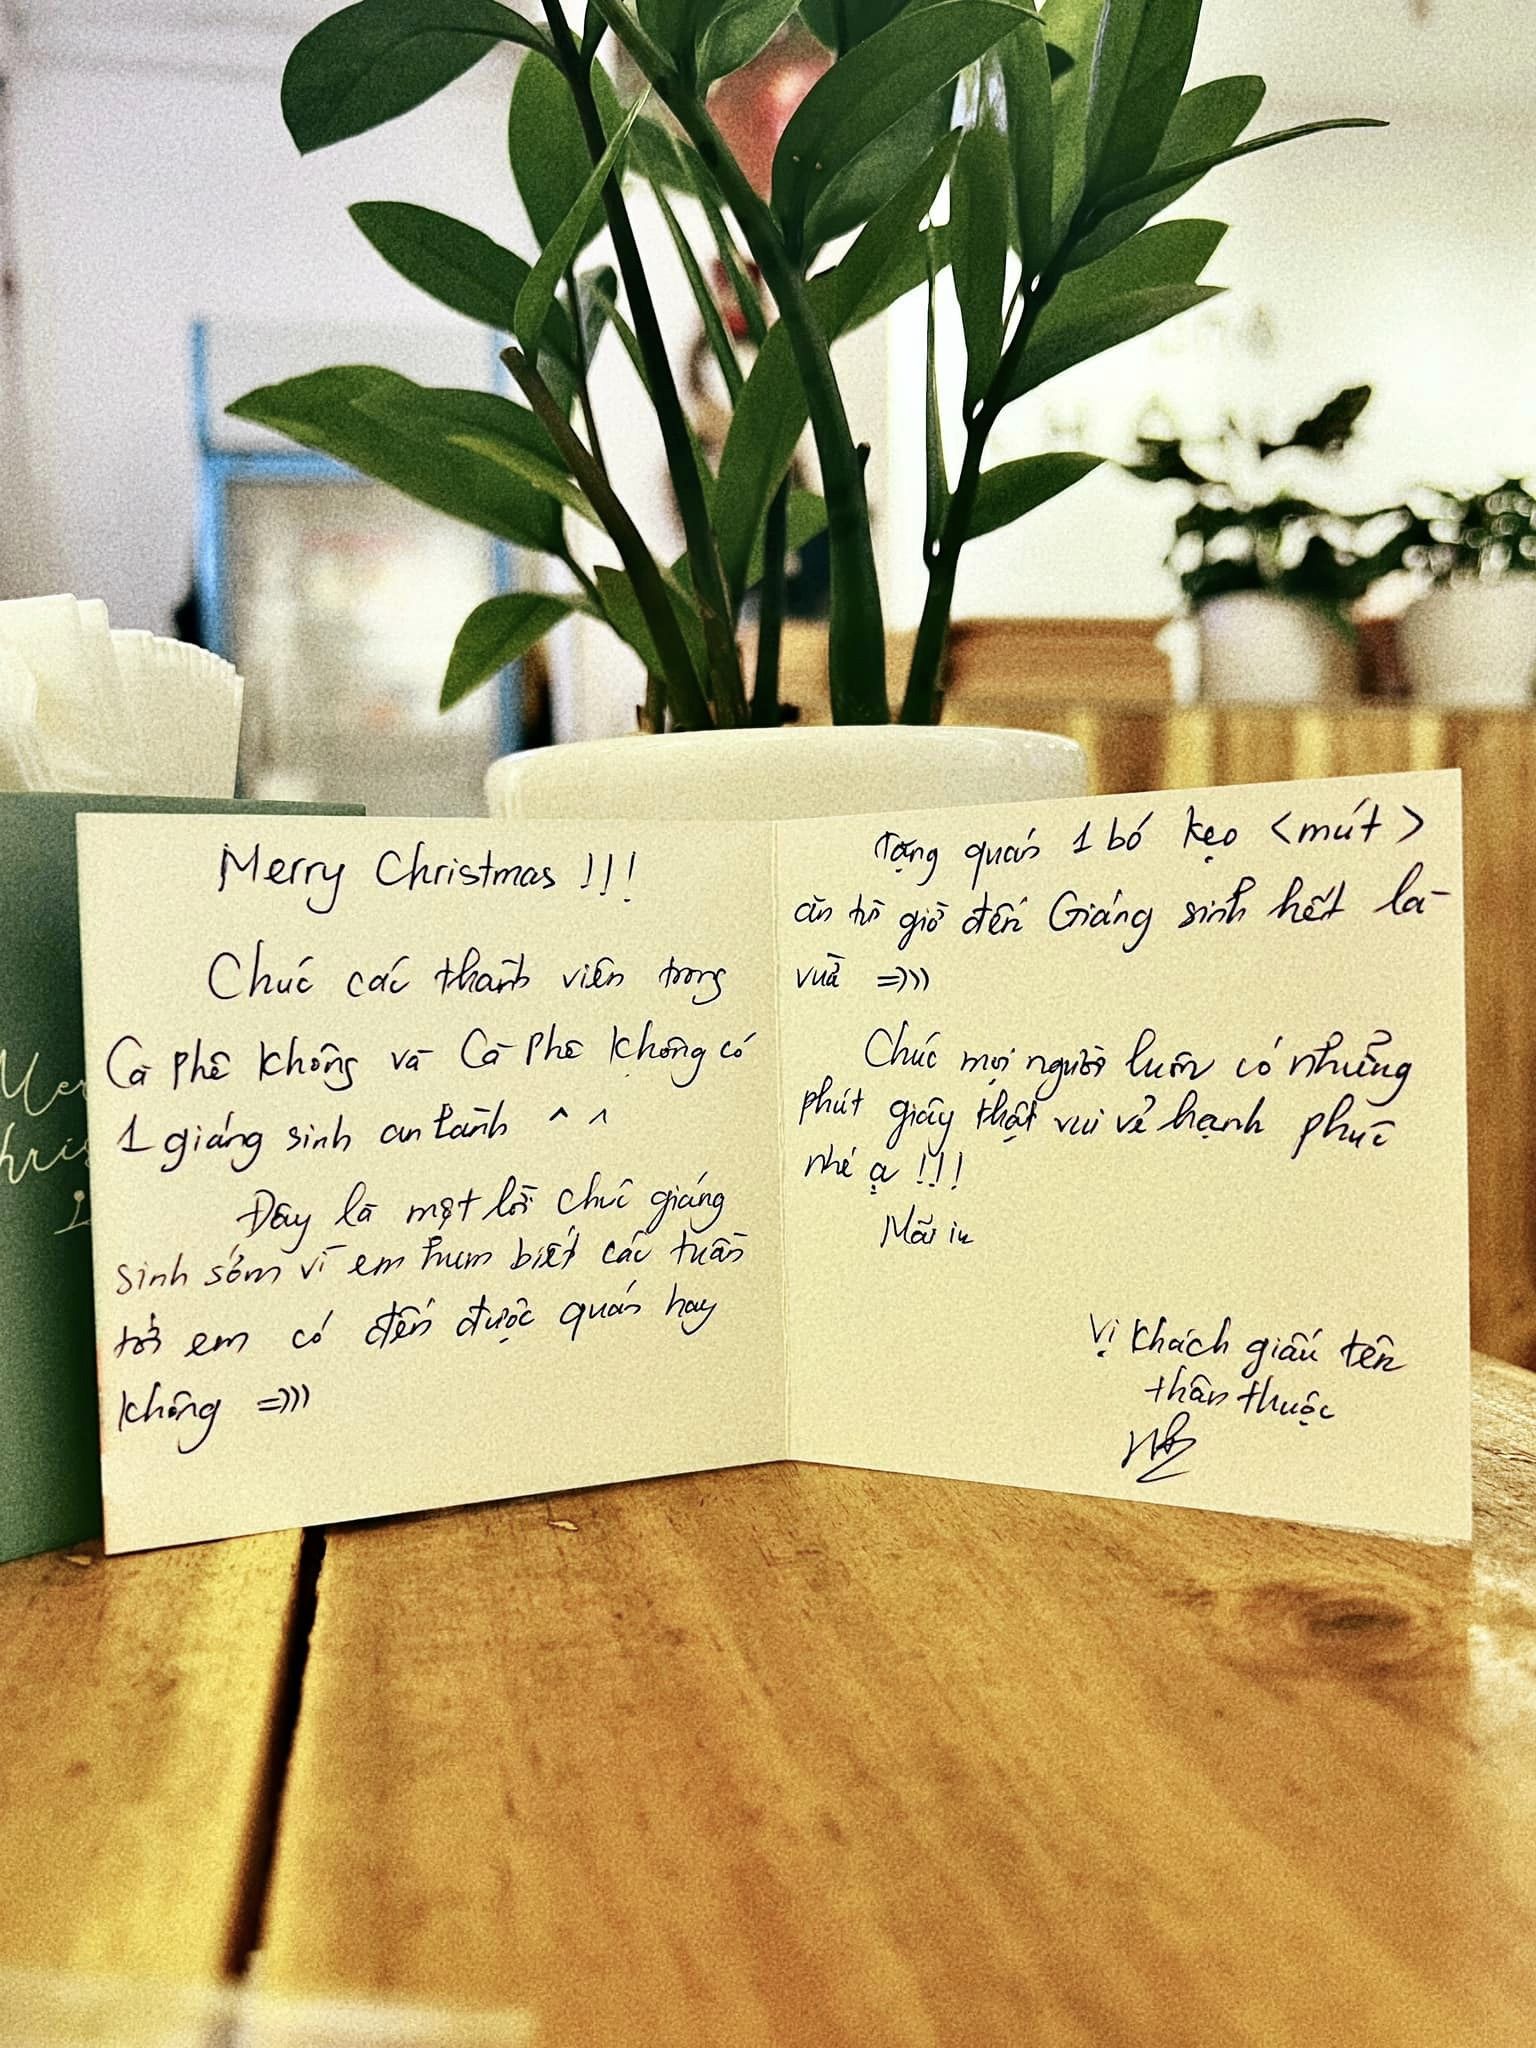 Merry Christmas !!!
Chúc các thành viên trong
Cà phê Không và Cà phê Không có
1 giáng sinh an lành ^ ^
Đây là một lời chúc giáng
sinh sớm vì em hum biết các tuần
tới em có đến được quán hay
không =)))
Tặng quán 1 bó kẹo <mút>
ăn từ giờ đến Giáng sinh hết là
vừa =)))
Chúc mọi người luôn có những
phút giây thật vui vẻ hạnh phúc
nhé ạ !!!
Mãi iu
Vị khách giấu tên
thân thuộc